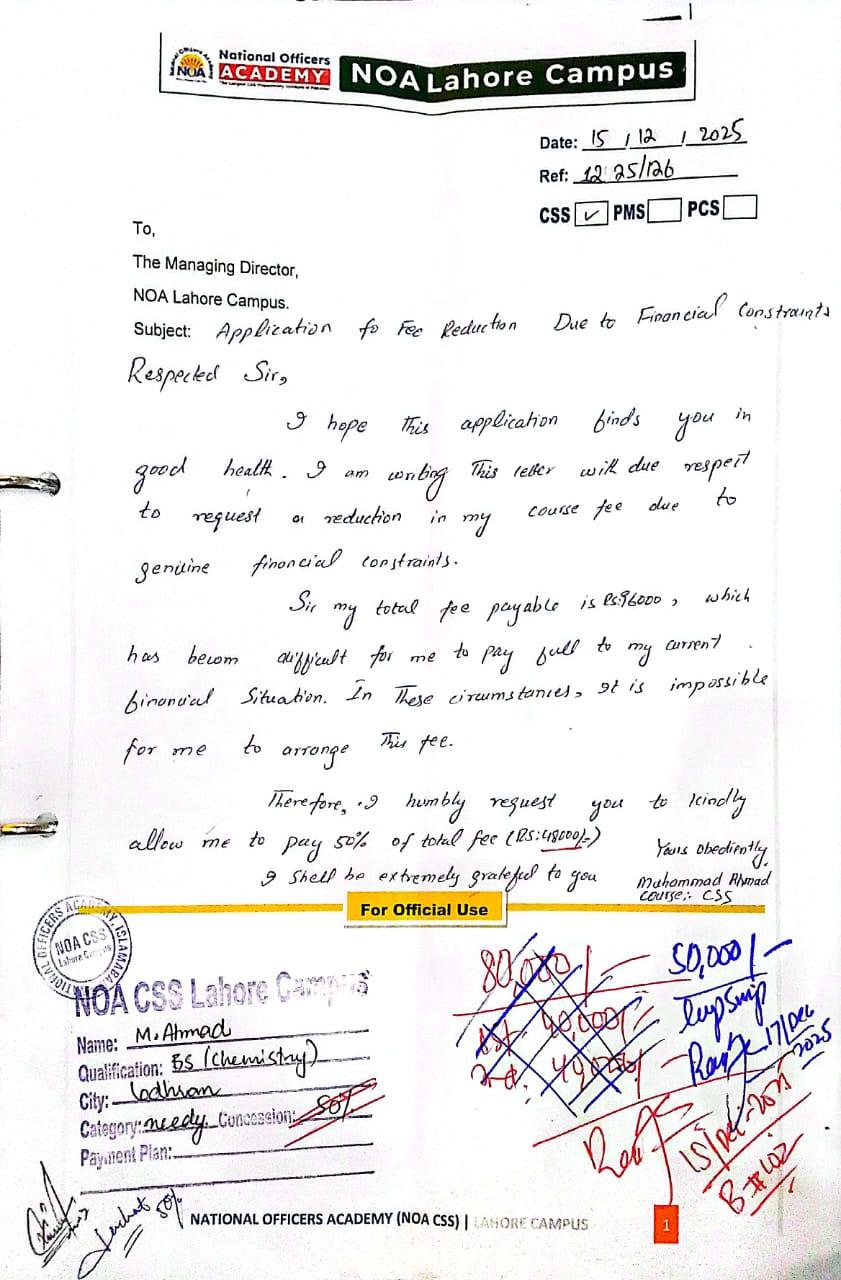 National Officers
NOA ACADEMY
NOA Lahore Campus
Date: 15 / 12 / 2025
Ref: 12 25/126
CSS ✓ PMS PCS
To,
The Managing Director,
NOA Lahore Campus.
Subject: Application fo Fee Reduction Due to Financial Constraints
Respected Sir,
I hope this application finds you in
good health. I am writing This letter with due respect
to request a reduction in my course fee due to
genuine financial constraints.
Sir my total fee payable is Rs:96000, which
has becom difficult for me to pay full to my current
financial Situation. In These circumstances, It is impossible
for me to arrange This fee.
Therefore, I humbly request you to kindly
allow me to pay 50% of total fee (Rs:48000/-)
I Shall be extremely grateful to you
Yours Obediently,
Muhammad Ahmad
Course:- CSS
For Official Use
NATIONAL OFFICERS ACADEMY, ISLAMABAD
NOA CSS
Lahore Campus
NOA CSS Lahore Campus
Name: M. Ahmad
Qualification: BS (Chemistry)
City: Lodhran
Category: needy Concession: 50%
Payment Plan:
80,000/-
1st. 40,000/-
2nd.
50,000/-
lumpsump
17/Dec
2025
15/Dec-2025
B#102
50%
NATIONAL OFFICERS ACADEMY (NOA CSS) | LAHORE CAMPUS
1